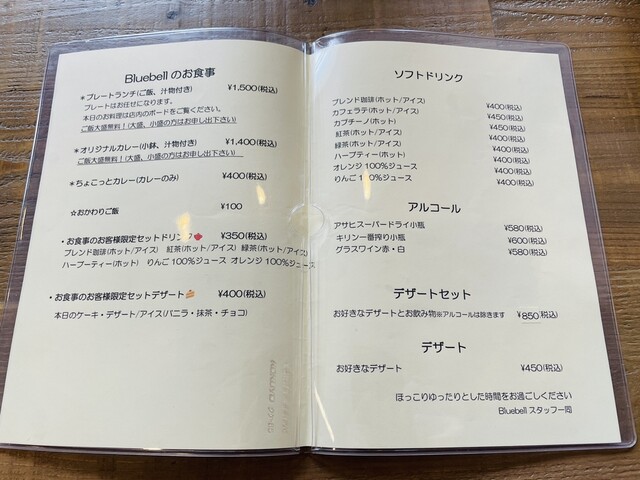 Bluebell のお食事
＊プレートランチ(ご飯、汁物付き) ¥1,500(税込)
プレートはお任せになります。
本日のお料理は店内のボードをご覧ください。
ご飯大盛無料！(大盛、小盛の方はお申し出下さい)
＊オリジナルカレー(小鉢、汁物付き) ¥1,400(税込)
ご飯大盛無料！(大盛、小盛の方はお申し出下さい)
＊ちょこっとカレー(カレーのみ) ¥400(税込)
☆おかわりご飯 ¥100
・お食事のお客様限定セットドリンク ¥350(税込)
ブレンド珈琲(ホット/アイス) 紅茶(ホット/アイス) 緑茶(ホット/アイス)
ハーブティー(ホット) りんご100%ジュース オレンジ100%ジュース
・お食事のお客様限定セットデザート ¥400(税込)
本日のケーキ・デザート/アイス(バニラ・抹茶・チョコ)
ソフトドリンク
ブレンド珈琲(ホット/アイス) ¥400(税込)
カフェラテ(ホット/アイス) ¥450(税込)
カプチーノ(ホット) ¥450(税込)
紅茶(ホット/アイス) ¥400(税込)
緑茶(ホット/アイス) ¥400(税込)
ハーブティー(ホット) ¥400(税込)
オレンジ100%ジュース ¥400(税込)
りんご100%ジュース ¥400(税込)
アルコール
アサヒスーパードライ小瓶 ¥580(税込)
キリン一番搾り小瓶 ¥600(税込)
グラスワイン赤・白 ¥580(税込)
デザートセット
お好きなデザートとお飲み物※アルコールは除きます ¥850(税込)
デザート
お好きなデザート ¥450(税込)
ほっこりゆったりとした時間をお過ごしください
Bluebell スタッフ一同